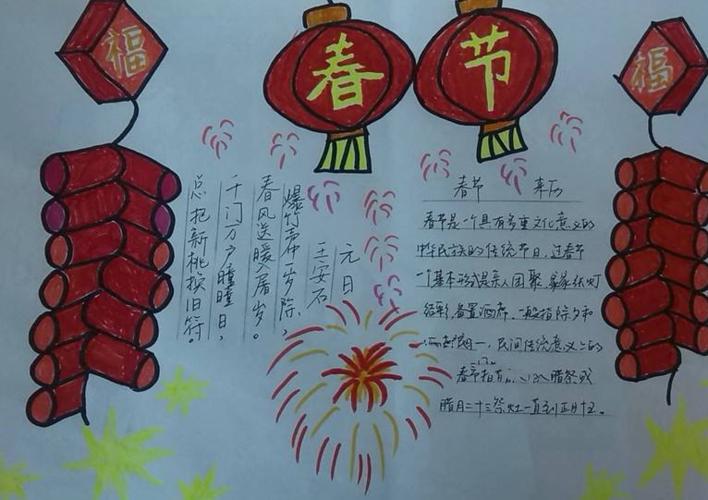 福
春节
福
元日
王安石
爆竹声中一岁除，
春风送暖入屠岁。
千门万户曈曈日，
总把新桃换旧符。
春节 来历
春节是一个具有多重文化意义的
中华民族的传统节日，过春节
一个基本形式是亲人团聚，家家张灯
结彩，备置酒席，一般指除夕和
正月初一，民间传统意义上的
春节指
腊祭或
腊月二十三祭灶一直到正月十五。